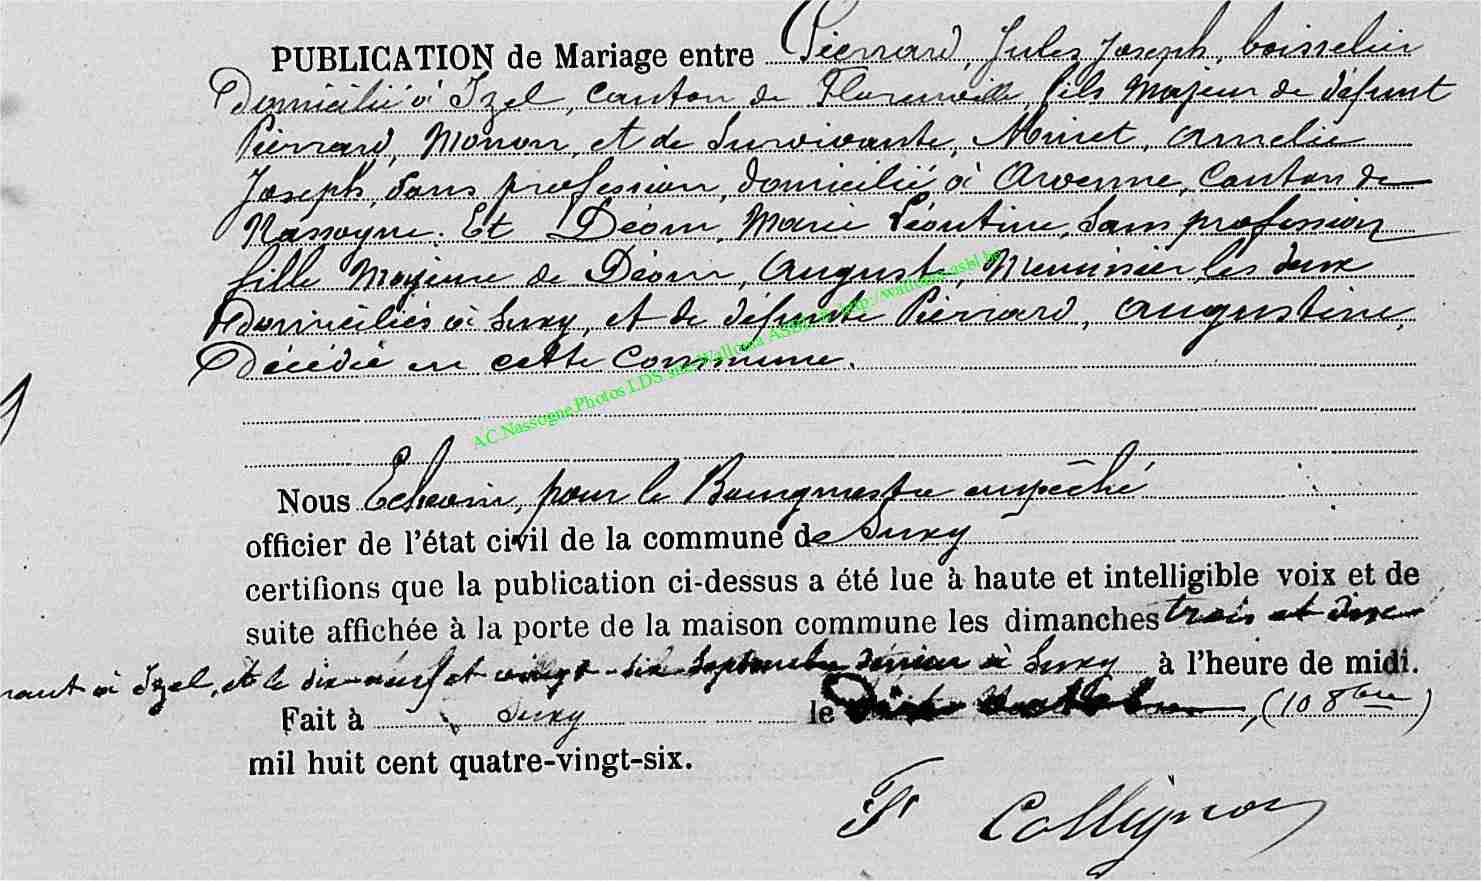 PUBLICATION de Mariage entre Pierrard, Jules Joseph, boisselier
Domicilié à Izel, canton de Florenville, fils Majeur de défunt
Pierrard, Monon, et de Survivante, Minet, Amelie
Joseph, sans profession, domicilié à Awenne, Canton de
Nassogne. Et Déom, Marie Léontine, Sans profession
fille Majeure de Déom, August, Menuisier, les deux
Domiciliés à Suxy, et de défunte Pierrard, Augustine,
Décédée en cette Commune.
AC Nassogne Photos LDS Wallonia ASBL
Nous Echevin, pour le Bourgmestre empêché
officier de l'état civil de la commune de Suxy
certifions que la publication ci-dessus a été lue à haute et intelligible voix et de
suite affichée à la porte de la maison commune les dimanches trois et dix
à Izel, et le dix-neuf et vingt-six Septembre dernier à Suxy à l'heure de midi.
Fait à Suxy le Dix octobre, (10 8bre)
mil huit cent quatre-vingt-six.
F Collignon